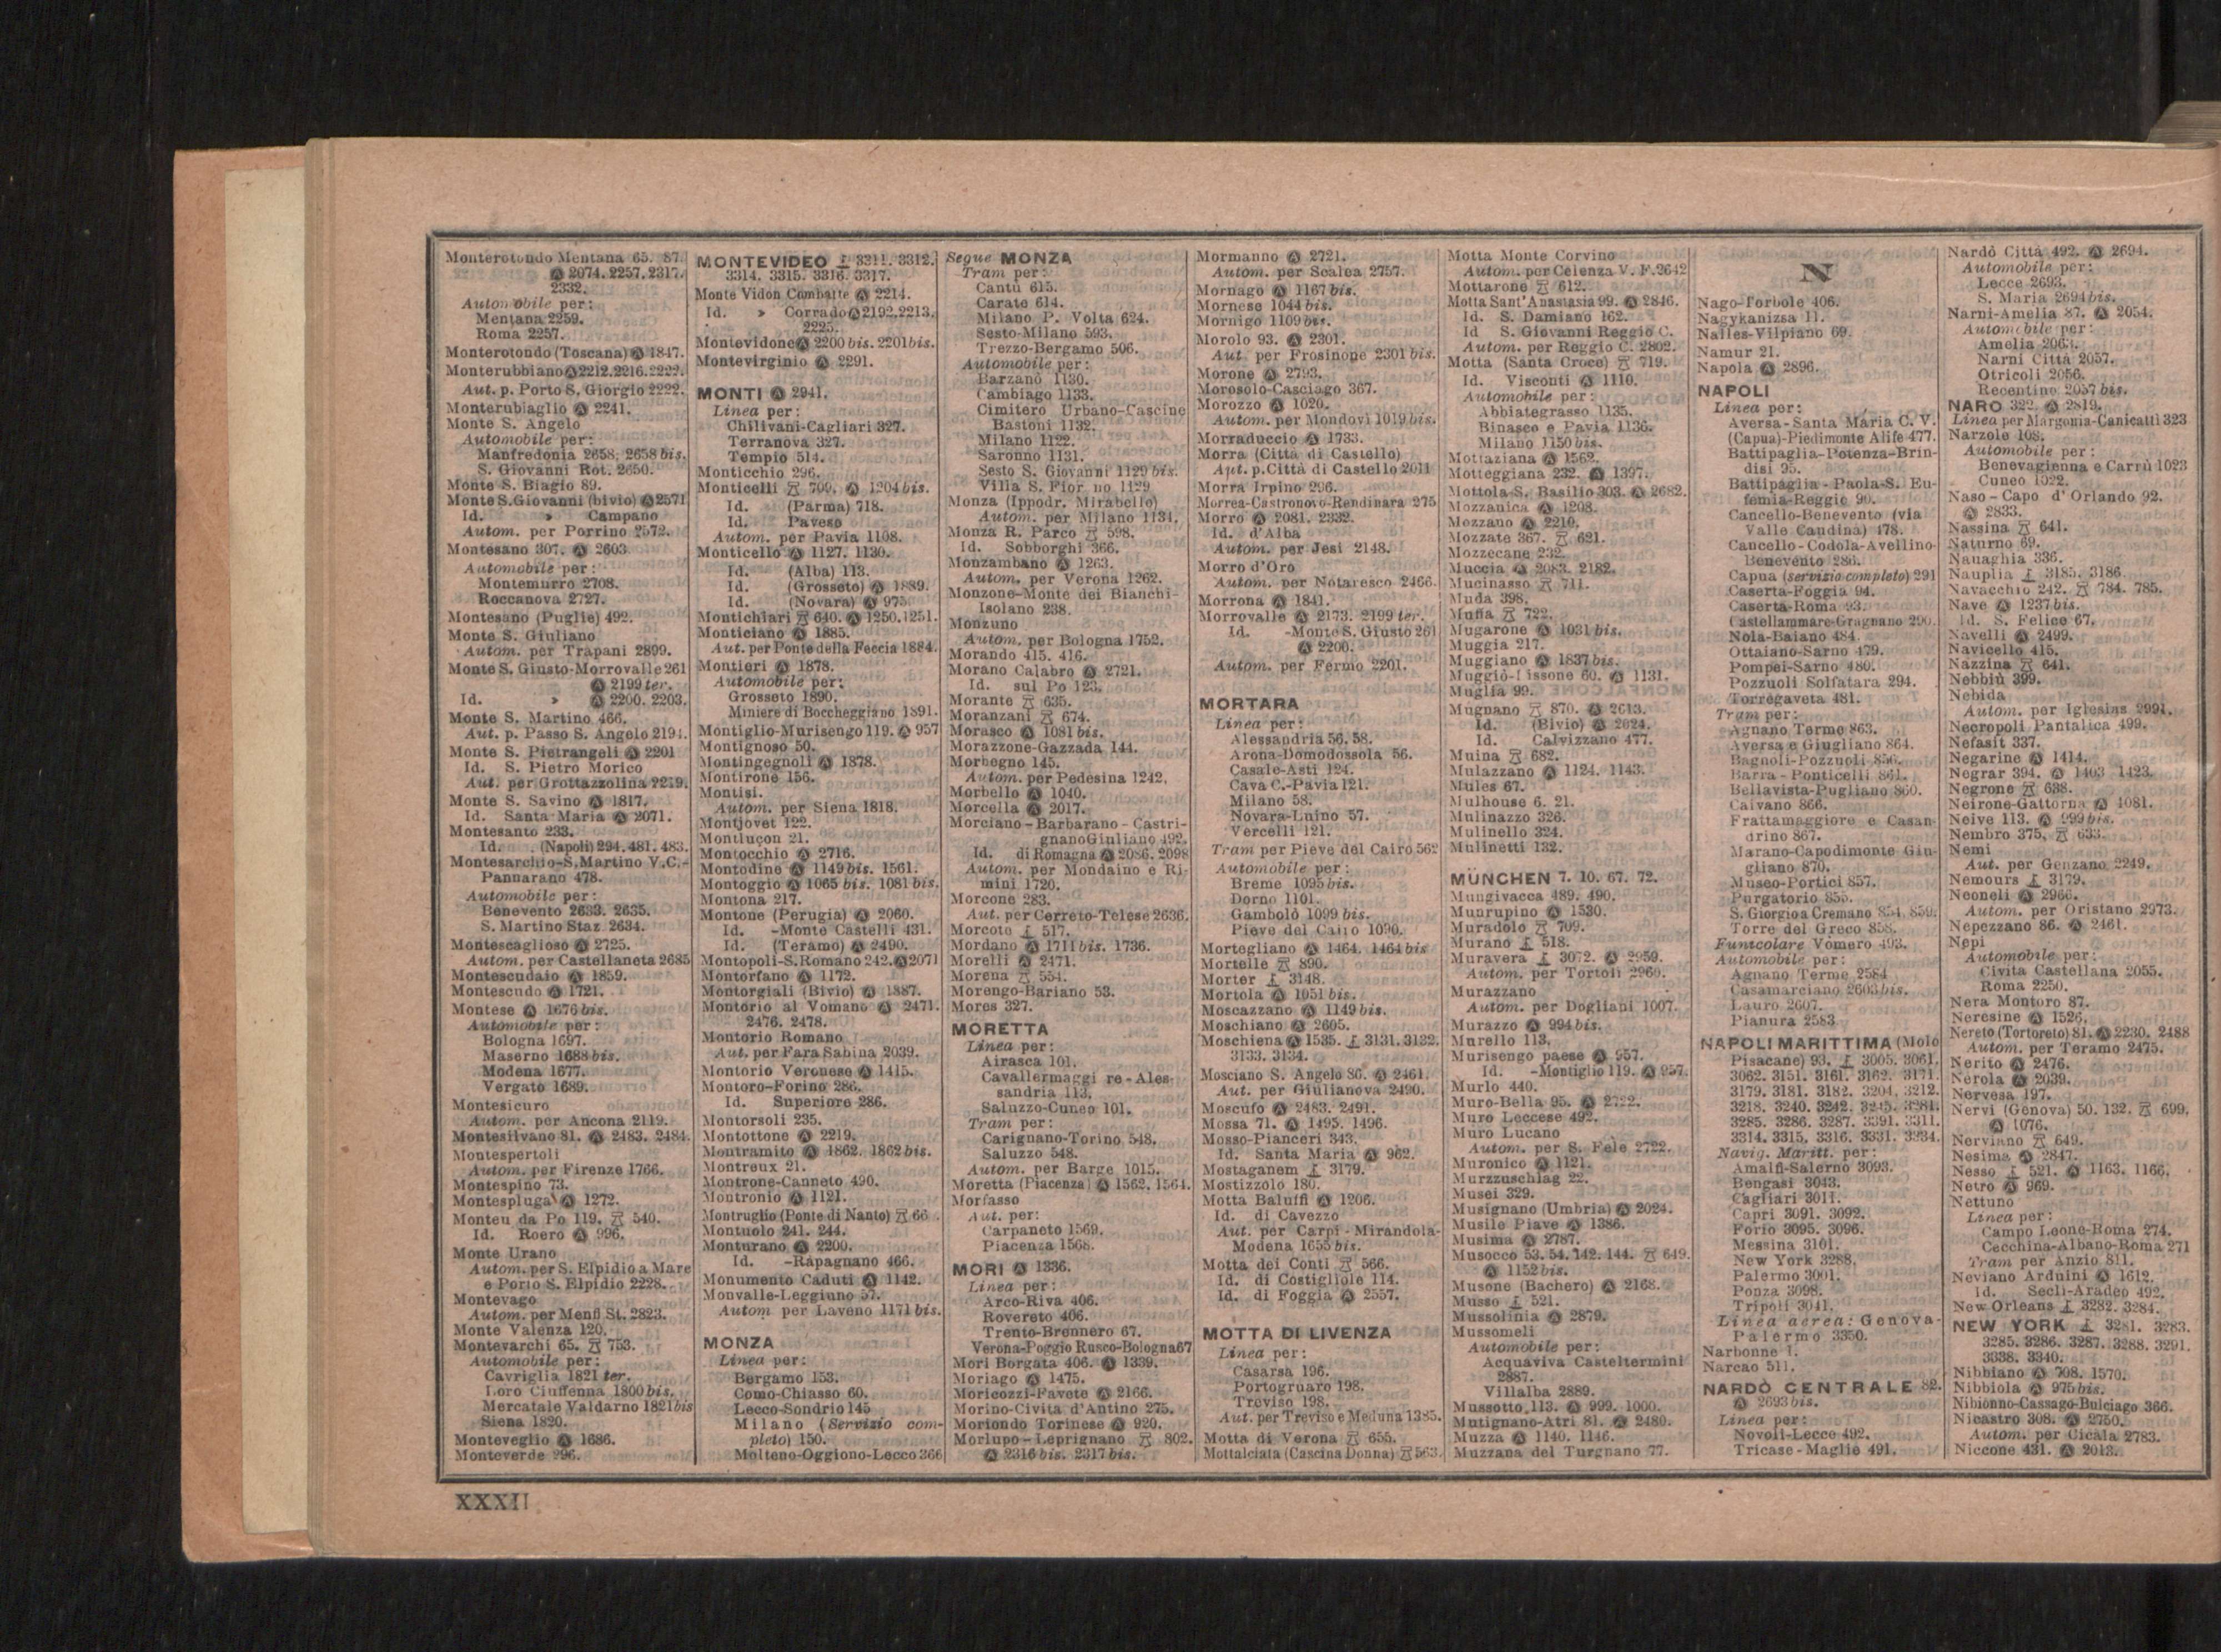 Monterotondo Mentana 65. 87.
Ⓐ 2074. 2257. 2317.
2332.
Automobile per:
Mentana 2259.
Roma 2257.
Monterotondo (Toscana) Ⓐ 1847.
Monterubbiano Ⓐ 2212. 2216. 2222.
Aut. p. Porto S. Giorgio 2222.
Monterubiaglio Ⓐ 2241.
Monte S. Angelo
Automobile per:
Manfredonia 2658. 2658 bis.
S. Giovanni Rot. 2650.
Monte S. Biagio 89.
Monte S. Giovanni (bivio) Ⓐ 2571
Id. » Campano
Autom. per Porrino 2572.
Montesano 307. Ⓐ 2603
Automobile per:
Montemurro 2708.
Roccanova 2727.
Montesano (Puglie) 492.
Monte S. Giuliano
Autom. per Trapani 2899.
Monte S. Giusto-Morrovalle 261
Ⓐ 2199 ter.
Id. » Ⓐ 2200. 2203.
Monte S. Martino 466.
Aut. p. Passo S. Angelo 2194.
Monte S. Pietrangeli Ⓐ 2201
Id. S. Pietro Morico
Aut. per Grottazzolina 2219.
Monte S. Savino Ⓐ 1817.
Id. Santa Maria Ⓐ 2071.
Montesanto 233.
Id. (Napoli) 294. 481. 483.
Montesarchio-S. Martino V.C.-
Pannarano 478.
Automobile per:
Benevento 2633. 2635.
S. Martino Staz. 2634.
Montescaglioso Ⓐ 2725.
Autom. per Castellaneta 2685
Montescudaio Ⓐ 1859.
Montescudo Ⓐ 1721.
Montese Ⓐ 1676 bis.
Automobile per:
Bologna 1697.
Maserno 1688 bis.
Modena 1677.
Vergato 1689.
Montesicuro
Autom. per Ancona 2119.
Montesilvano 81. Ⓐ 2483. 2484.
Montespertoli
Autom. per Firenze 1766.
Montespino 73.
Montespluga Ⓐ 1272.
Monteu da Po 119. 540.
Id. Roero Ⓐ 996.
Monte Urano
Autom. per S. Elpidio a Mare
e Porto S. Elpidio 2228.
Montevago
Autom. per Menfi St. 2823.
Monte Valenza 120.
Montevarchi 65. 753.
Automobile per:
Cavriglia 1821 ter.
Loro Ciuffenna 1800 bis.
Mercatale Valdarno 1821 bis
Siena 1820.
Monteveglio Ⓐ 1686.
Monteverde 296.
MONTEVIDEO 3311. 3312.
3314. 3315. 3316. 3317.
Monte Vidon Combatte Ⓐ 2214.
Id. » Corrado Ⓐ 2192. 2213.
2225.
Montevidone Ⓐ 2200 bis. 2201 bis.
Montevirginio Ⓐ 2291.
MONTI Ⓐ 2941.
Linea per:
Chilivani-Cagliari 327.
Terranova 327.
Tempio 514.
Monticchio 296.
Monticelli 709. Ⓐ 1204 bis.
Id. (Parma) 718.
Id. Pavese
Autom. per Pavia 1108.
Monticello Ⓐ 1127. 1130.
Id. (Alba) 113.
Id. (Grosseto) Ⓐ 1889.
Id. (Novara) Ⓐ 975
Montichiari 640. Ⓐ 1250. 1251.
Monticiano Ⓐ 1885.
Aut. per Ponte della Feccia 1884.
Montieri Ⓐ 1878.
Automobile per:
Grosseto 1890.
Miniere di Boccheggiano 1891.
Montiglio-Murisengo 119. Ⓐ 957
Montignoso 50.
Montingegnoli Ⓐ 1878.
Montirone 156.
Montisi.
Autom. per Siena 1818.
Montjovet 122.
Montluçon 21.
Montocchio Ⓐ 2716.
Montodine Ⓐ 1149 bis. 1561.
Montoggio Ⓐ 1065 bis. 1081 bis.
Montona 217.
Montone (Perugia) Ⓐ 2060.
Id. -Monte Castelli 431.
Id. (Teramo) Ⓐ 2490.
Montopoli-S. Romano 242. Ⓐ 2071
Montorfano Ⓐ 1172.
Montorgiali (Bivio) Ⓐ 1887.
Montorio al Vomano Ⓐ 2471.
2476. 2478.
Montorio Romano
Aut. per Fara Sabina 2039.
Montorio Veronese Ⓐ 1415.
Montoro-Forino 286.
Id. Superiore 286.
Montorsoli 235.
Montottone Ⓐ 2219.
Montramito Ⓐ 1862. 1862 bis.
Montreux 21.
Montrone-Canneto 490.
Montronio Ⓐ 1121.
Montruglio (Ponte di Nanto)
Montuolo 241. 244.
Monturano Ⓐ 2200.
Id. -Rapagnano 466.
Monumento Caduti Ⓐ 1142.
Monvalle-Leggiuno 57.
Autom per Laveno 1171 bis.
MONZA
Linea per:
Bergamo 153.
Como-Chiasso 60.
Lecco-Sondrio 145
Milano (Servizio com-
pleto) 150.
Molteno-Oggiono-Lecco 366
Segue MONZA
Tram per:
Cantù 615.
Carate 614.
Milano P. Volta 624.
Sesto-Milano 593.
Trezzo-Bergamo 506.
Automobile per:
Barzanò 1130.
Cambiago 1133.
Cimitero Urbano-Cascine
Bastoni 1132.
Milano 1122.
Saronno 1131.
Sesto S. Giovanni 1129 bis.
Villa S. Fior no 1129
Monza (Ippodr. Mirabello)
Autom. per Milano 1134.
Monza R. Parco 598.
Id. Sobborghi 366.
Monzambano Ⓐ 1263.
Autom. per Verona 1262.
Monzone-Monte dei Bianchi-
Isolano 238.
Monzuno
Autom. per Bologna 1752.
Morando 415. 416.
Morano Calabro Ⓐ 2721.
Id. sul Po 123.
Morante 635.
Moranzani 674.
Morasco Ⓐ 1081 bis.
Morazzone-Gazzada 144.
Morbegno 145.
Autom. per Pedesina 1242.
Morbello Ⓐ 1040.
Morcella Ⓐ 2017.
Morciano-Barbarano-Castri-
gnano Giuliano 492.
Id. di Romagna Ⓐ 2086. 2098
Autom. per Mondaino e Ri-
mini 1720.
Morcone 283.
Aut. per Cerreto-Telese 2636.
Morcote 517.
Mordano Ⓐ 1711 bis. 1736.
Morelli Ⓐ 2471.
Morena 554.
Morengo-Bariano 53.
Mores 327.
MORETTA
Linea per:
Airasca 101.
Cavallermaggi re-Ales-
sandria 113.
Saluzzo-Cuneo 101.
Tram per:
Carignano-Torino 548.
Saluzzo 548.
Autom. per Barge 1015.
Moretta (Piacenza) Ⓐ 1562. 1564.
Morfasso
Aut. per:
Carpaneto 1569.
Piacenza 1568.
MORI Ⓐ 1336.
Linea per:
Arco-Riva 406.
Rovereto 406.
Trento-Brennero 67.
Verona-Poggio Rusco-Bologna 67
Mori Borgata 406. Ⓐ 1339.
Moriago Ⓐ 1475.
Moricozzi-Favete Ⓐ 2166.
Morino-Civita d'Antino 275.
Moriondo Torinese Ⓐ 920.
Morlupo-Leprignano 802.
Ⓐ 2316 bis. 2317 bis.
Mormanno Ⓐ 2721.
Autom. per Scalea 2757.
Mornago Ⓐ 1167 bis.
Mornese 1044 bis.
Mornigo 1109 bis.
Morolo 93. Ⓐ 2301.
Aut. per Frosinone 2301 bis.
Morone Ⓐ 2793.
Morosolo-Casciago 367.
Morozzo Ⓐ 1020.
Autom. per Mondovì 1019 bis.
Morraduccio Ⓐ 1733.
Morra (Città di Castello)
Aut. p. Città di Castello 2011
Morra Irpino 296.
Morrea-Castronovo-Rendinara 275
Morro Ⓐ 2081. 2332.
Id. d'Alba
Autom. per Jesi 2148.
Morro d'Oro
Autom. per Notaresco 2466.
Morrona Ⓐ 1841.
Morrovalle Ⓐ 2173. 2199 ter.
Id. -Monte S. Giusto 261
Ⓐ 2200.
Autom. per Fermo 2201.
MORTARA
Linea per:
Alessandria 56. 58.
Arona-Domodossola 56.
Casale-Asti 124.
Cava C.-Pavia 121.
Milano 58.
Novara-Luino 57.
Vercelli 121.
Tram per Pieve del Cairo 562
Automobile per:
Breme 1095 bis.
Dorno 1101.
Gambolò 1099 bis.
Pieve del Cairo 1090.
Mortegliano Ⓐ 1464. 1464 bis
Mortelle 890.
Morter 3148.
Mortola Ⓐ 1051 bis.
Moscazzano Ⓐ 1149 bis.
Moschiano Ⓐ 2605.
Moschiena Ⓐ 1535. 3131. 3132.
3133. 3134.
Mosciano S. Angelo 86. Ⓐ 2461.
Aut. per Giulianova 2490.
Moscufo Ⓐ 2483. 2491.
Mossa 71. Ⓐ 1495. 1496.
Mosso-Pianceri 343.
Id. Santa Maria Ⓐ 962.
Mostaganem 3179.
Mostizzolo 180.
Motta Baluffi Ⓐ 1206.
Id. di Cavezzo
Aut. per Carpi-Mirandola-
Modena 1655 bis.
Motta dei Conti 566.
Id. di Costigliole 114.
Id. di Foggia Ⓐ 2557.
MOTTA DI LIVENZA
Linea per:
Casarsa 196.
Portogruaro 198.
Treviso 198.
Aut. per Treviso e Meduna 1385.
Motta di Verona 655.
Mottalciata (Cascina Donna) 563.
Motta Monte Corvino
Autom. per Celenza V. F. 2642
Mottarone 612.
Motta Sant'Anastasia 99. Ⓐ 2846.
Id. S. Damiano 162.
Id S. Giovanni Reggio C.
Autom. per Reggio C. 2802.
Motta (Santa Croce) 719.
Id. Visconti Ⓐ 1110.
Automobile per:
Abbiategrasso 1135.
Binasco e Pavia 1136.
Milano 1150 bis.
Mottaziana Ⓐ 1562.
Motteggiana 232. Ⓐ 1397.
Mottola-S. Basilio 303. Ⓐ 2682.
Mozzanica Ⓐ 1208.
Mozzano Ⓐ 2210.
Mozzate 367. 621.
Mozzecane 232.
Muccia Ⓐ 2083. 2182.
Mucinasso 711.
Muda 398.
Muffa 722.
Mugarone Ⓐ 1031 bis.
Muggia 217.
Muggiano Ⓐ 1837 bis.
Muggiò-Lissone 60. Ⓐ 1131.
Muglia 99.
Mugnano 870. Ⓐ 2613.
Id. (Bivio) Ⓐ 2024.
Id. Calvizzano 477.
Muina 682.
Mulazzano Ⓐ 1124. 1143.
Mules 67.
Mulhouse 6. 21.
Mulinazzo 326.
Mulinello 324.
Mulinetti 132.
MÜNCHEN 7. 10. 67. 72.
Mungivacca 489. 490.
Munrupino Ⓐ 1530.
Muradolo 709.
Murano 518.
Muravera 3072. Ⓐ 2959.
Autom. per Tortolì 2960.
Murazzano
Autom. per Dogliani 1007.
Murazzo Ⓐ 994 bis.
Murello 113.
Murisengo paese Ⓐ 957.
Id. -Montiglio 119. Ⓐ 957.
Murlo 440.
Muro-Bella 95. Ⓐ 2722.
Muro Leccese 492.
Muro Lucano
Autom. per S. Fele 2722.
Muronico Ⓐ 1121.
Murzzuschlag 22.
Musei 329.
Musignano (Umbria) Ⓐ 2024.
Musile Piave Ⓐ 1386.
Musima Ⓐ 2787.
Musocco 53. 54. 142. 144. 649.
Ⓐ 1152 bis.
Musone (Bachero) Ⓐ 2168.
Musso 521.
Mussolinia Ⓐ 2879.
Mussomeli
Automobile per:
Acquaviva Casteltermini
2887.
Villalba 2889.
Mussotto 113. Ⓐ 999. 1000.
Mutignano-Atri 81. Ⓐ 2480.
Muzza Ⓐ 1140. 1146.
Muzzana del Turgnano 77.
N
Nago-Torbole 406.
Nagykanizsa 11.
Nalles-Vilpiano 69.
Namur 21.
Napola Ⓐ 2896.
NAPOLI
Linea per:
Aversa-Santa Maria C. V.
(Capua)-Piedimonte Alife 477.
Battipaglia-Potenza-Brin-
disi 95.
Battipaglia-Paola-S. Eu-
femia-Reggio 90.
Cancello-Benevento (via
Valle Caudina) 478.
Cancello-Codola-Avellino-
Benevento 286.
Capua (servizio completo) 291
Caserta-Foggia 94.
Caserta-Roma 93.
Castellammare-Gragnano 290.
Nola-Baiano 484.
Ottaiano-Sarno 479.
Pompei-Sarno 480.
Pozzuoli Solfatara 294.
Torregaveta 481.
Tram per:
Agnano Terme 863.
Aversa e Giugliano 864.
Bagnoli-Pozzuoli 856.
Barra-Ponticelli 861.
Bellavista-Pugliano 860.
Caivano 866.
Frattamaggiore e Casan-
drino 867.
Marano-Capodimonte Giu-
gliano 870.
Museo-Portici 857.
Purgatorio 855.
S. Giorgio a Cremano 854. 859.
Torre del Greco 858.
Funicolare Vomero 493.
Automobile per:
Agnano Terme 2584
Casamarciano 2603 bis.
Lauro 2607.
Pianura 2583
NAPOLI MARITTIMA (Molo
Pisacane) 93. 3005. 3061.
3062. 3151. 3161. 3162. 3171.
3179. 3181. 3182. 3204. 3212.
3218. 3240. 3242. 3245. 3281.
3285. 3286. 3287. 3391. 3311.
3314. 3315. 3316. 3331. 3334.
Navig. Maritt. per:
Amalfi-Salerno 3093.
Bengasi 3043.
Cagliari 3011.
Capri 3091. 3092.
Forio 3095. 3096.
Messina 3101.
New York 3288.
Palermo 3001.
Ponza 3098.
Tripoli 3041.
Linea aerea: Genova-
Palermo 3350.
Narbonne 1.
Narcao 511.
NARDÒ CENTRALE 82.
Ⓐ 2693 bis.
Linea per:
Novoli-Lecce 492.
Tricase-Maglie 491.
Nardò Città 492. Ⓐ 2694.
Automobile per:
Lecce 2693.
S. Maria 2694 bis.
Narni-Amelia 87. Ⓐ 2054.
Automobile per:
Amelia
Narni Città 2057.
Otricoli 2056.
Recentino 2057 bis.
NARO 322. Ⓐ 2819.
Linea per Margonia-Canicattì 323
Narzole 108.
Automobile per:
Benevagienna e Carrù 1023
Cuneo 1022.
Naso-Capo d'Orlando 92.
Ⓐ 2833.
Nassina 641.
Naturno 69.
Nauaghia 336.
Nauplia 3185. 3186.
Navacchio 242. 784. 785.
Nave Ⓐ 1237 bis.
Id. S. Felice 67.
Navelli Ⓐ 2499.
Navicello 415.
Nazzina 641.
Nebbiù 399.
Nebida
Autom. per Iglesias 2991.
Necropoli Pantalica 499.
Nefasit 337.
Negarine Ⓐ 1414.
Negrar 394. Ⓐ 1403 1423.
Negrone 638.
Neirone-Gattorna Ⓐ 1081.
Neive 113. Ⓐ 999 bis.
Nembro 375. 633.
Nemi
Aut. per Genzano 2249.
Nemours 3179.
Neoneli Ⓐ 2966.
Autom. per Oristano 2973.
Nepezzano 86. Ⓐ 2461.
Nepi
Automobile per:
Civita Castellana 2055.
Roma 2250.
Nera Montoro 87.
Neresine Ⓐ 1526.
Nereto (Tortoreto) 81. Ⓐ 2230. 2488
Autom. per Teramo 2475.
Nerito Ⓐ 2476.
Nerola Ⓐ 2039.
Nervesa 197.
Nervi (Genova) 50. 132. 699.
Ⓐ 1076.
Nerviano 649.
Nesima Ⓐ 2847.
Nesso 521. Ⓐ 1163. 1166.
Netro Ⓐ 969.
Nettuno
Linea per:
Campo Leone-Roma 274.
Cecchina-Albano-Roma 271
Tram per Anzio 811.
Neviano Arduini Ⓐ 1612.
Id. Secli-Aradeo 492.
New Orleans 3282. 3284.
NEW YORK 3281. 3283.
3285. 3286. 3287. 3288. 3291.
3338. 3340.
Nibbiano Ⓐ 708. 1570.
Nibbiola Ⓐ 975 bis.
Nibionno-Cassago-Bulciago 366.
Nicastro 308. Ⓐ 2750.
Autom. per Cicala 2783.
Niccone 431. Ⓐ 2013.
XXXII